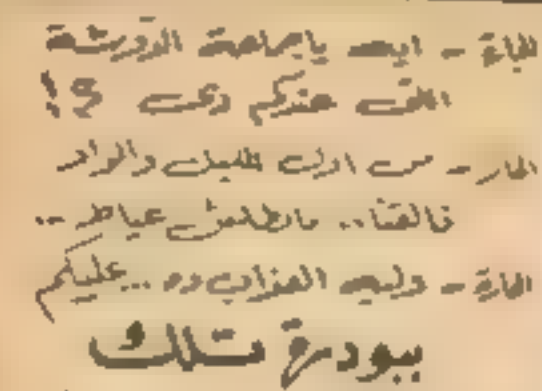 الجارة - ايه ياجماعة الدوشة
اللى عندكم دى ؟!
الجار - من اول الليل والواد
فالقنا.. مابطلش عياط ..
الجارة - وليه العذاب ده ... عليكم
ببودرة تلك